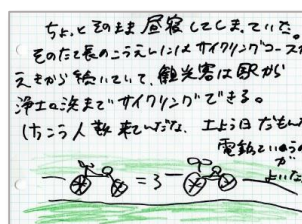 ちょっとそのまま昼寝してしまっていた。
そのたて長のこうえんにはサイクリングコースが
えきから続いていて、観光客は駅から
浄土ヶ浜までサイクリングできる。
けっこう人数来てんだな、土よう日だもんな
電動っていうのが
よいな